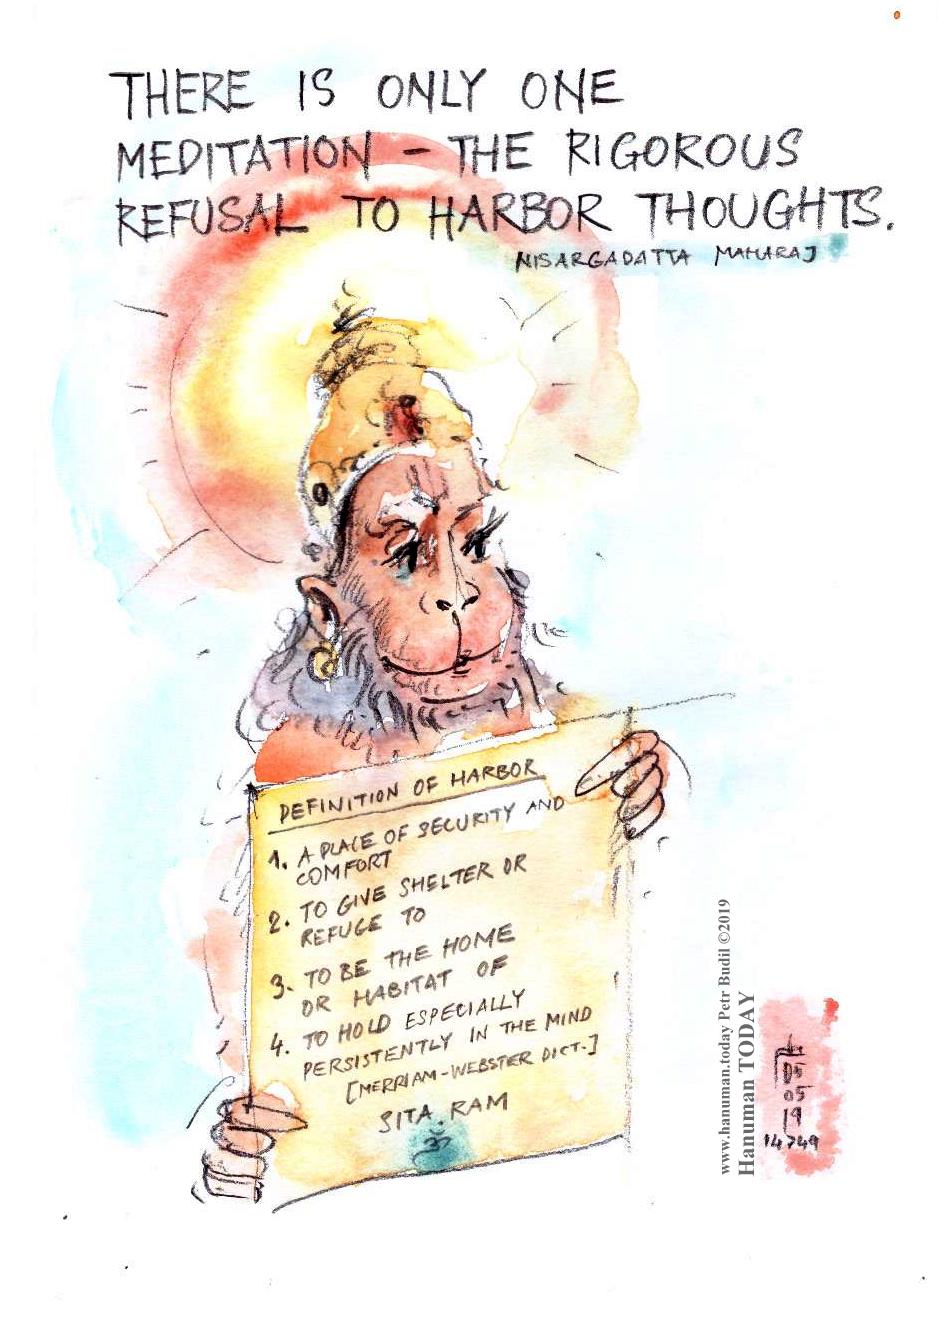 THERE IS ONLY ONE
MEDITATION - THE RIGOROUS
REFUSAL TO HARBOR THOUGHTS.
NISARGADATTA MAHARAJ
DEFINITION OF HARBOR
1. A PLACE OF SECURITY AND
COMFORT
2. TO GIVE SHELTER OR
REFUGE TO
3. TO BE THE HOME
OR HABITAT OF
4. TO HOLD ESPECIALLY
PERSISTENTLY IN THE MIND
[MERRIAM-WEBSTER DICT.]
SITA RAM
ॐ
www.hanuman.today Petr Budil ©2019
Hanuman TODAY
05
05
19
14749